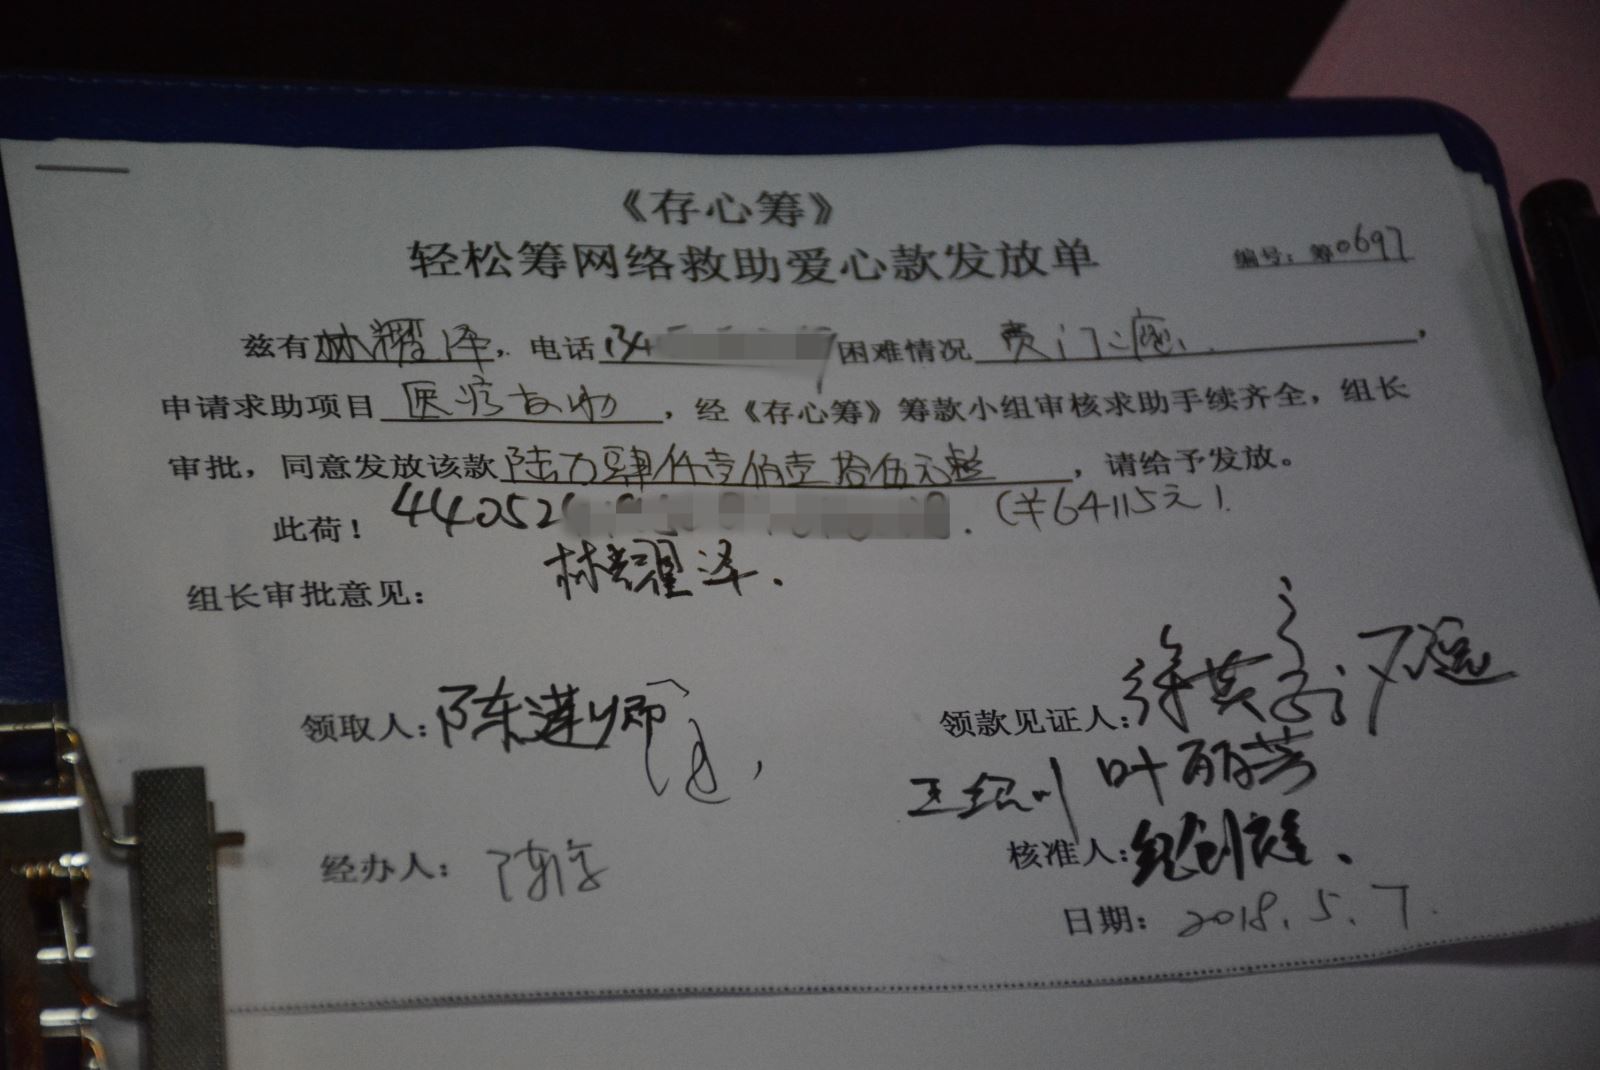 《存心筹》
轻松筹网络救助爱心款发放单
编号：筹0697
兹有林耀泽，电话134 困难情况贲门癌，
申请求助项目医疗救助，经《存心筹》筹款小组审核求助手续齐全，组长
审批，同意发放该款陆万肆仟壹佰壹拾伍元整，请给予发放。
此荷！ 44052 (￥64115元)
组长审批意见： 林耀泽.
领取人：陈莲师
领款见证人：徐英
王绍川 叶丽芳
经办人：
核准人：
日期：2018.5.7.